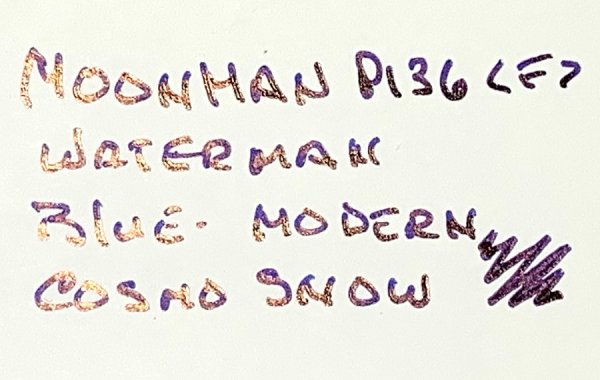 MOONMAN P136 <F>
WATERMAN
BLUE. MODERN
COSMO SNOW